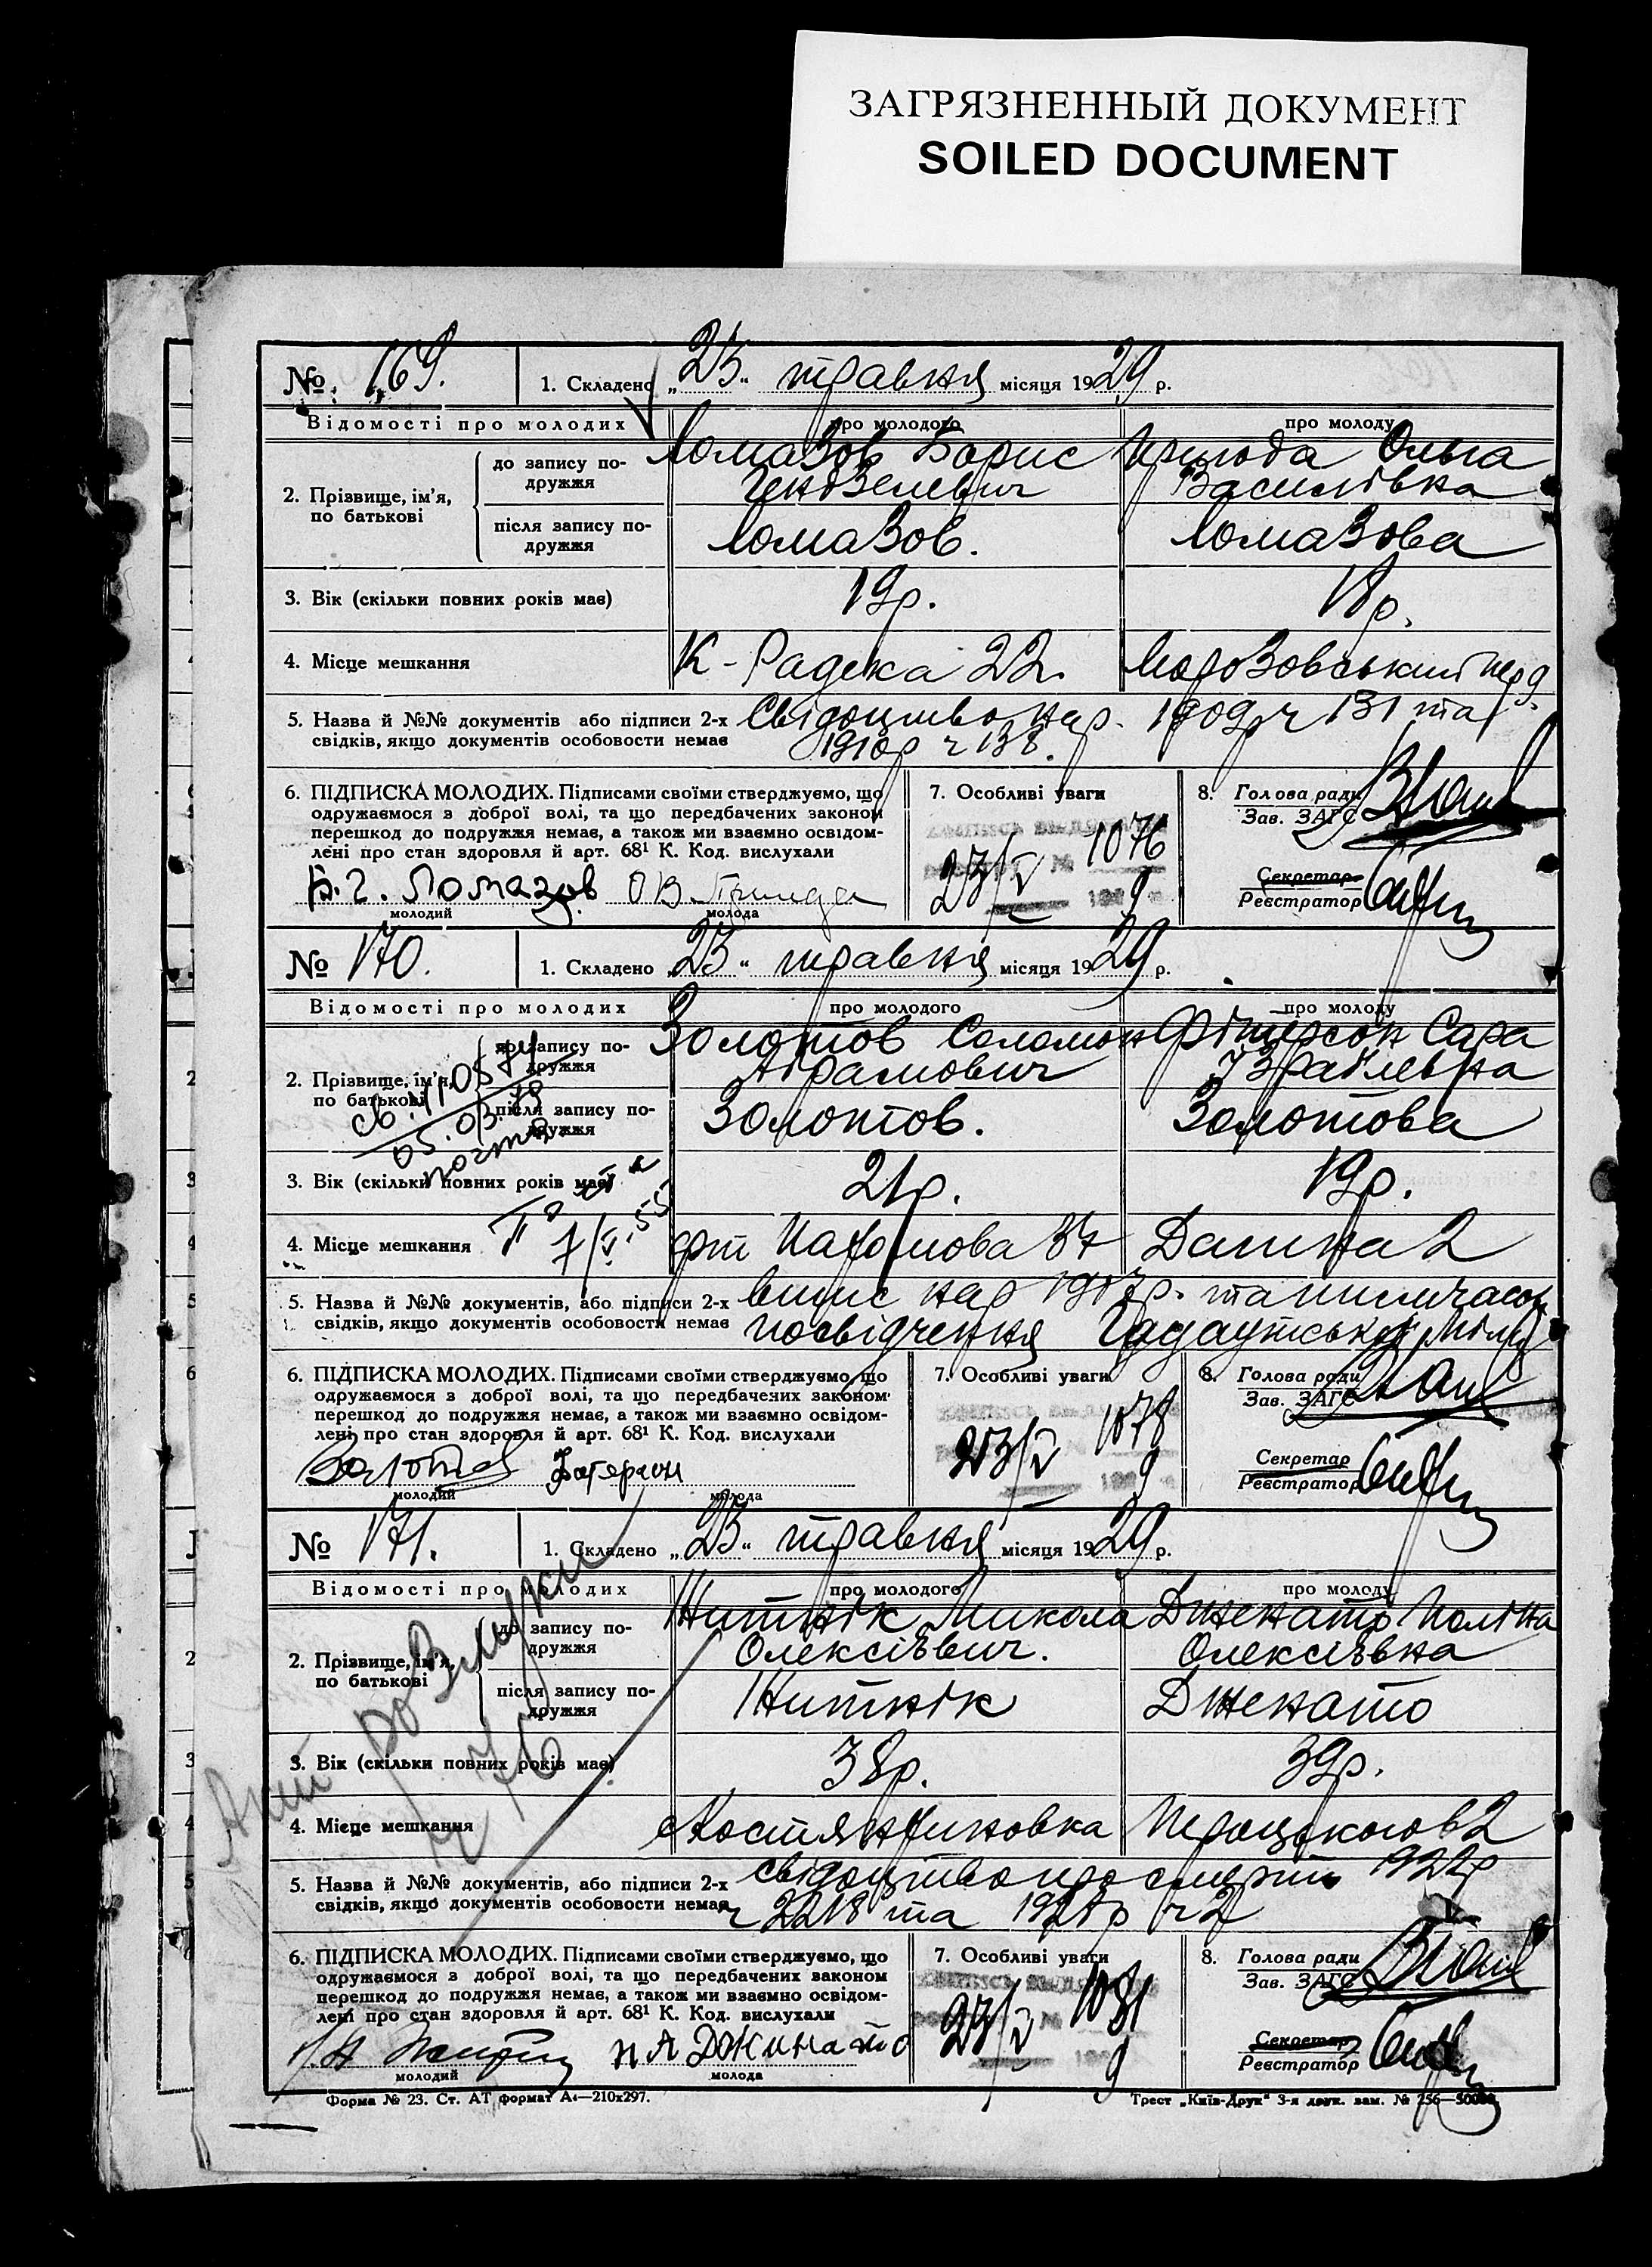 ЗАГРЯЗНЕННЫЙ ДОКУМЕНТ
SOILED DOCUMENT
№ 169. 1. Складено „23“ травня місяця 1929 р.
Відомості про молодих про молодого про молоду
2. Прізвище, ім’я, по батькові
до запису подружжя Ломазов Борис Ольга Василівка
після запису подружжя Ломазов. Ломазова
3. Вік (скільки повних років має) 19р. 18р.
4. Місце мешкання К-Радека 22.
5. Назва й №№ документів або підписи 2-х Свідоцтво нар. 1909р ч 131 та
свідків, якщо документів особовости немає 1910р ч 138.
6. ПІДПИСКА МОЛОДИХ. Підписами своїми стверджуємо, що
одружаємося з доброї волі, та що передбачених законом
перешкод до подружжя немає, а також ми взаємно освідом-
лені про стан здоровля й арт. 68¹ К. Код. вислухали
Б.Г. Ломазов
молодий молода
7. Особливі уваги
1076
23/V 9
8. Голова ради
Зав. ЗАГС
Секретар
Реєстратор
№ 170. 1. Складено „23“ травня місяця 1929 р.
Відомості про молодих про молодого про молоду
2. Прізвище, ім’я, по батькові
до запису подружжя Золотов Соломон Абрамович Сара
після запису подружжя Золотов. Золотова
05.03.
3. Вік (скільки повних років має) 21р. 19р.
4. Місце мешкання 37 2
5. Назва й №№ документів, або підписи 2-х нар 1907р. та
свідків, якщо документів особовости немає посвідчення
6. ПІДПИСКА МОЛОДИХ. Підписами своїми стверджуємо, що
одружаємося з доброї волі, та що передбачених законом
перешкод до подружжя немає, а також ми взаємно освідом-
лені про стан здоровля й арт. 68¹ К. Код. вислухали
Золотов
молодий молода
7. Особливі уваги
1078
23/V 9
8. Голова ради
Зав. ЗАГС
Секретар
Реєстратор
№ 171. 1. Складено „23“ травня місяця 1929 р.
Відомості про молодих про молодого про молоду
2. Прізвище, ім’я, по батькові
до запису подружжя Житнік Микола Олексієвич. Дженато Поліна Олексієвна
після запису подружжя Житнік Дженато
Акт розлуки
ч 76
3. Вік (скільки повних років має) 38р. 39р.
4. Місце мешкання 2
5. Назва й №№ документів, або підписи 2-х свідоцтво про смерть 1922р
свідків, якщо документів особовости немає ч 2218 та ч 2
6. ПІДПИСКА МОЛОДИХ. Підписами своїми стверджуємо, що
одружаємося з доброї волі, та що передбачених законом
перешкод до подружжя немає, а також ми взаємно освідом-
лені про стан здоровля й арт. 68¹ К. Код. вислухали
П А Джинато
молодий молода
7. Особливі уваги
1081
23/V 9
8. Голова ради
Зав. ЗАГС
Секретар
Реєстратор
Форма № 23. Ст. АТ формат А4—210х297.
Трест „Київ-Друк“ 3-я друк. зам. № 256—